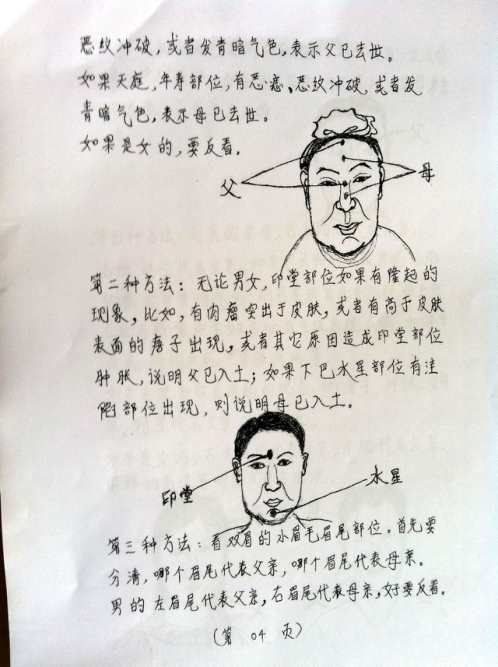 恶纹冲破，或者发青暗气色，表示父已去世。
如果天庭，年寿部位，有恶痣、恶纹冲破，或者发
青暗气色，表示母已去世。
如果是女的，要反看。
父
母
第二种方法：无论男女，印堂部位如果有隆起的
现象，比如，有肉瘤突出于皮肤，或者有高于皮肤
表面的痣子出现，或者其它原因造成印堂部位
肿胀，说明父已入土；如果下巴水星部位有洼
陷部位出现，则说明母已入土。
印堂
水星
第三种方法：看双眉的小眉毛眉尾部位。首先要
分清，哪个眉尾代表父亲，哪个眉尾代表母亲。
男的左眉尾代表父亲，右眉尾代表母亲，女要反看。
（第 04 页）